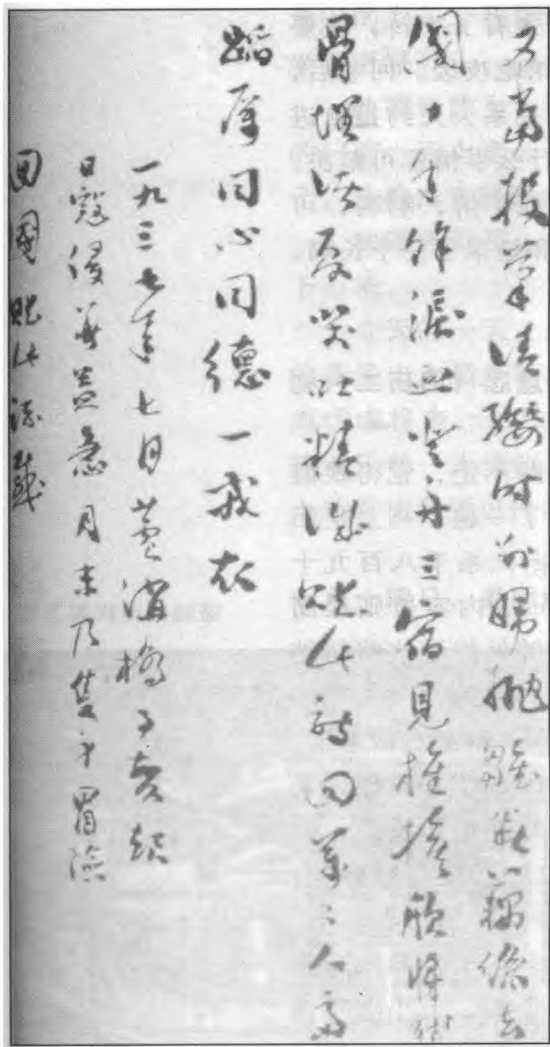 又當投筆請纓時別婦拋雛斷藕絲去
國十年餘淚血登舟三宿見旌旗欣將殘
骨埋諸夏哭吐精誠賦此詩四萬〻人齊
蹈厲同心同德一戎衣
一九三七年七月蘆溝橋事變起
日寇侵華益急月末乃隻身冒險
回國賦此誌感